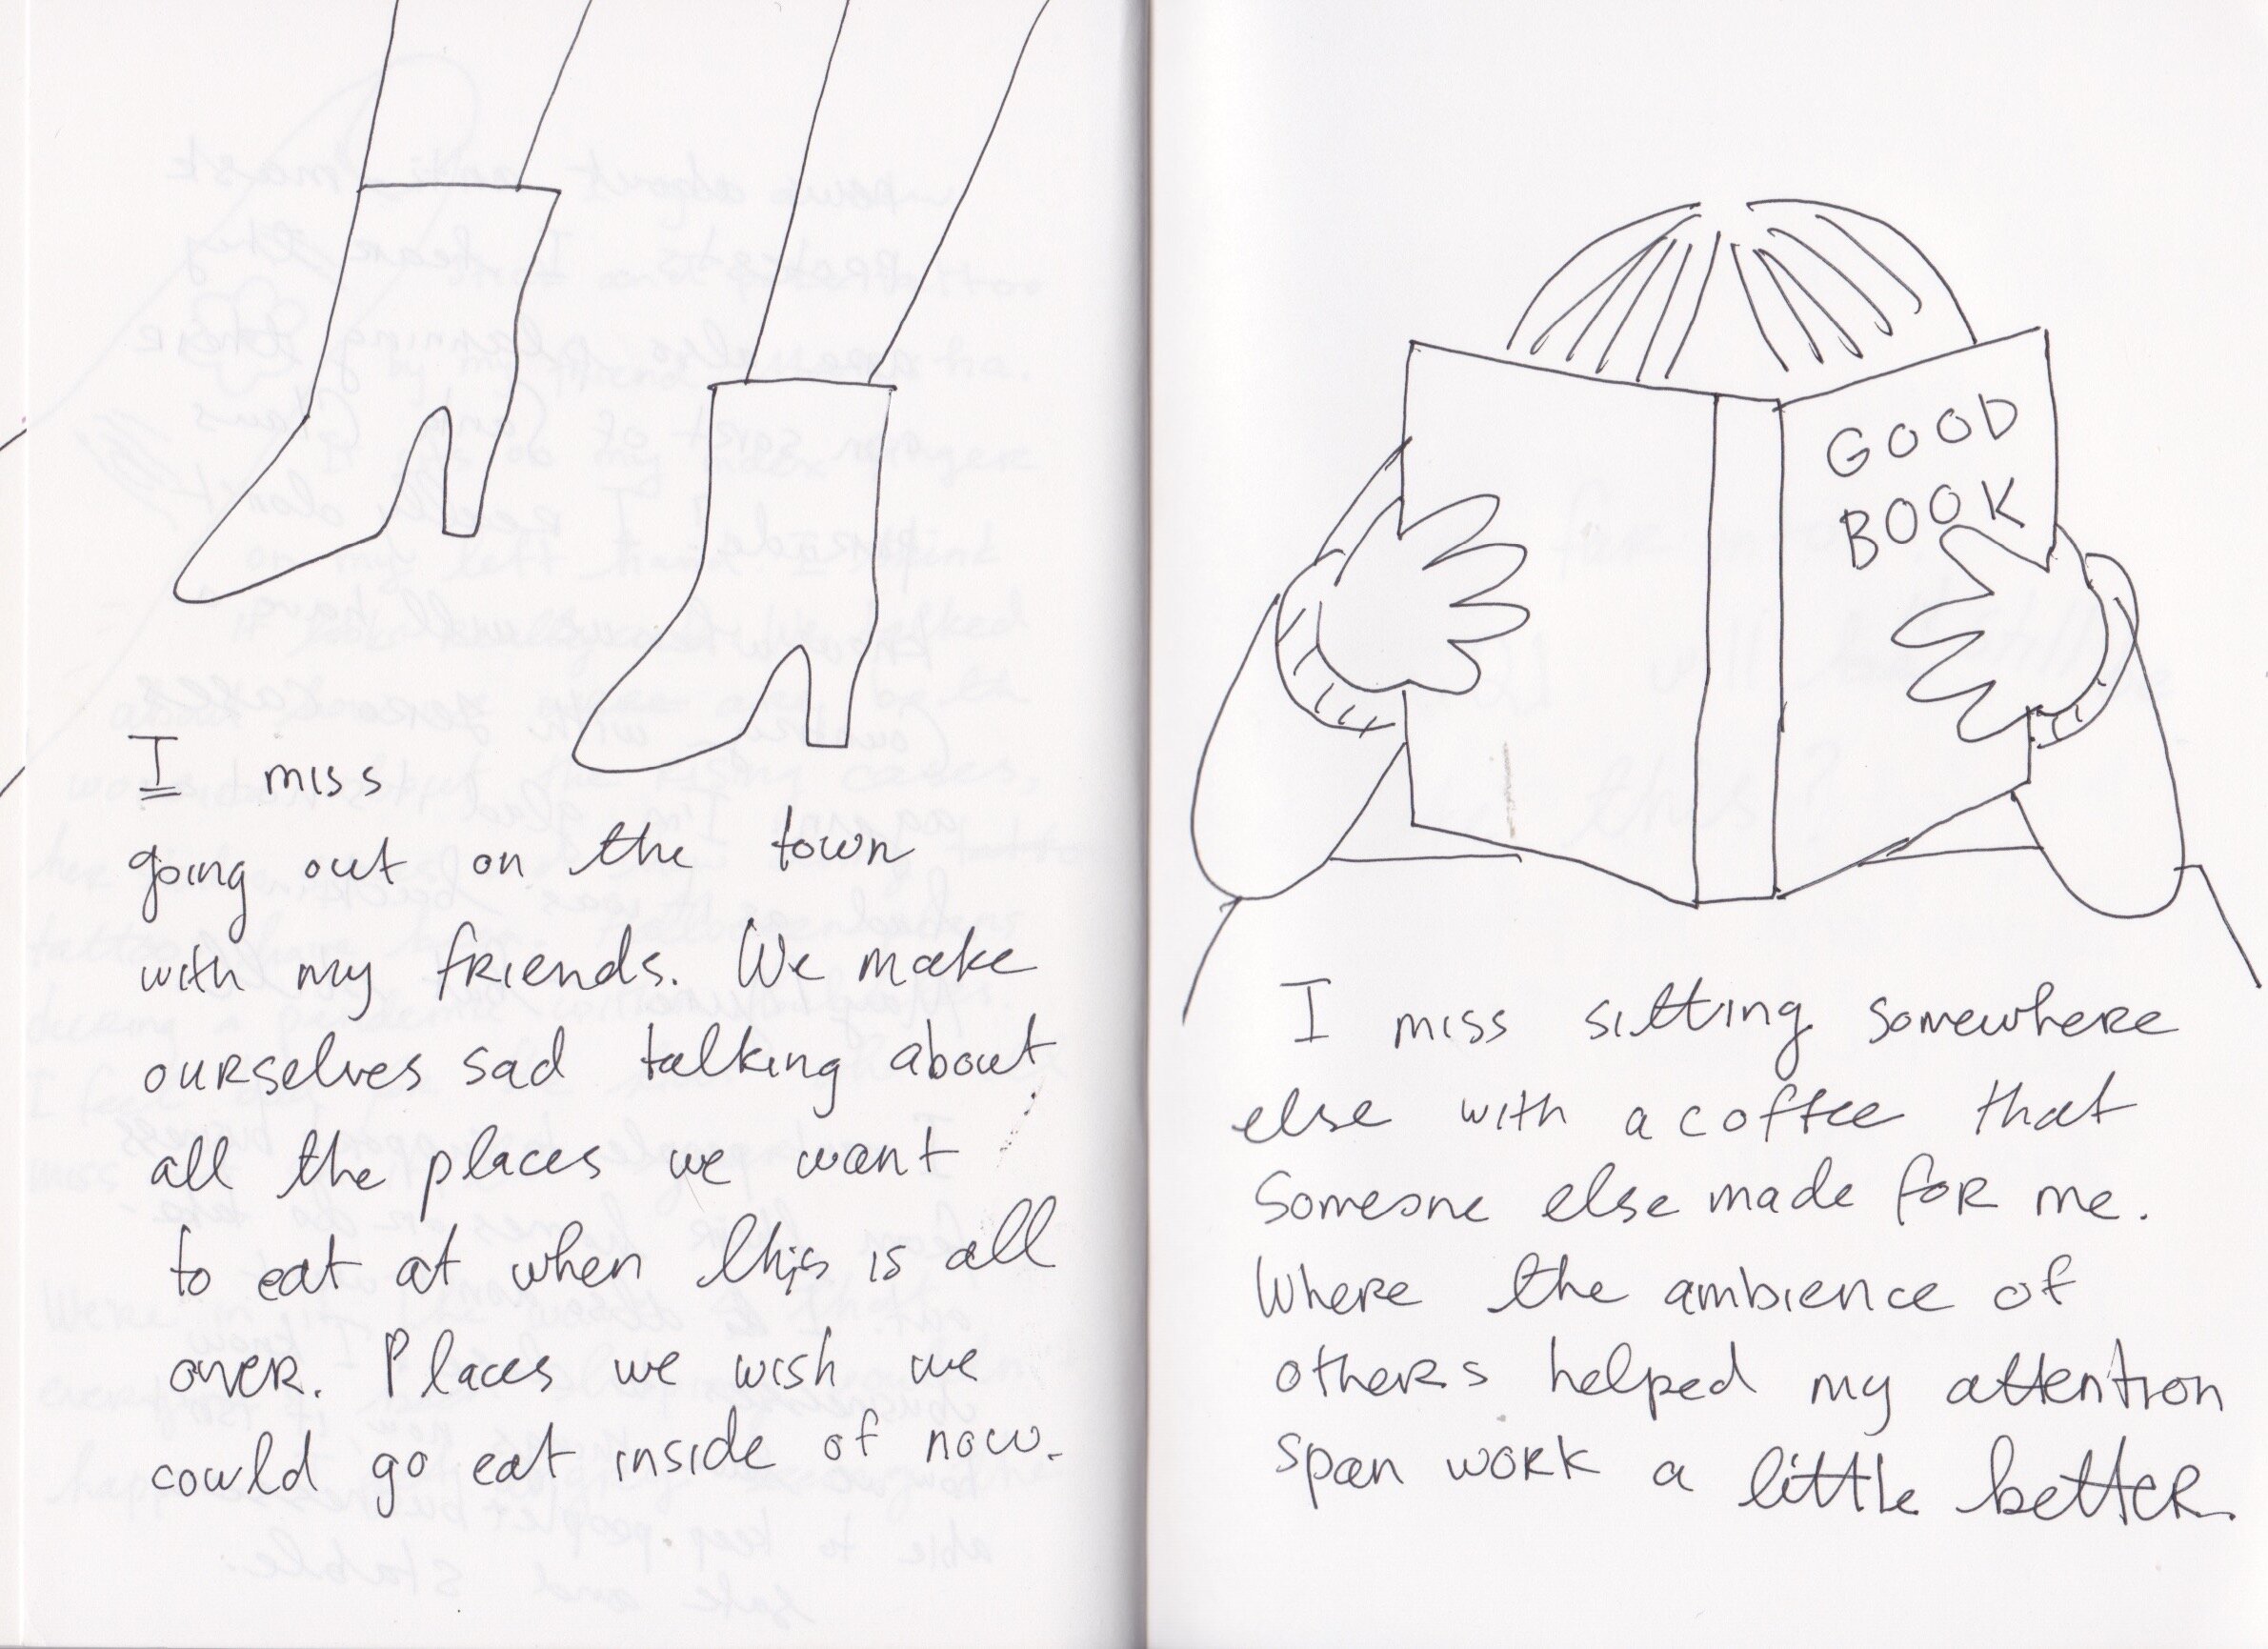 I miss
going out on the town
with my friends. We make
ourselves sad talking about
all the places we want
to eat at when this is all
over. Places we wish we
could go eat inside of now.
GOOD
BOOK
I miss sitting somewhere
else with a coffee that
someone else made for me.
Where the ambience of
others helped my attention
span work a little better.